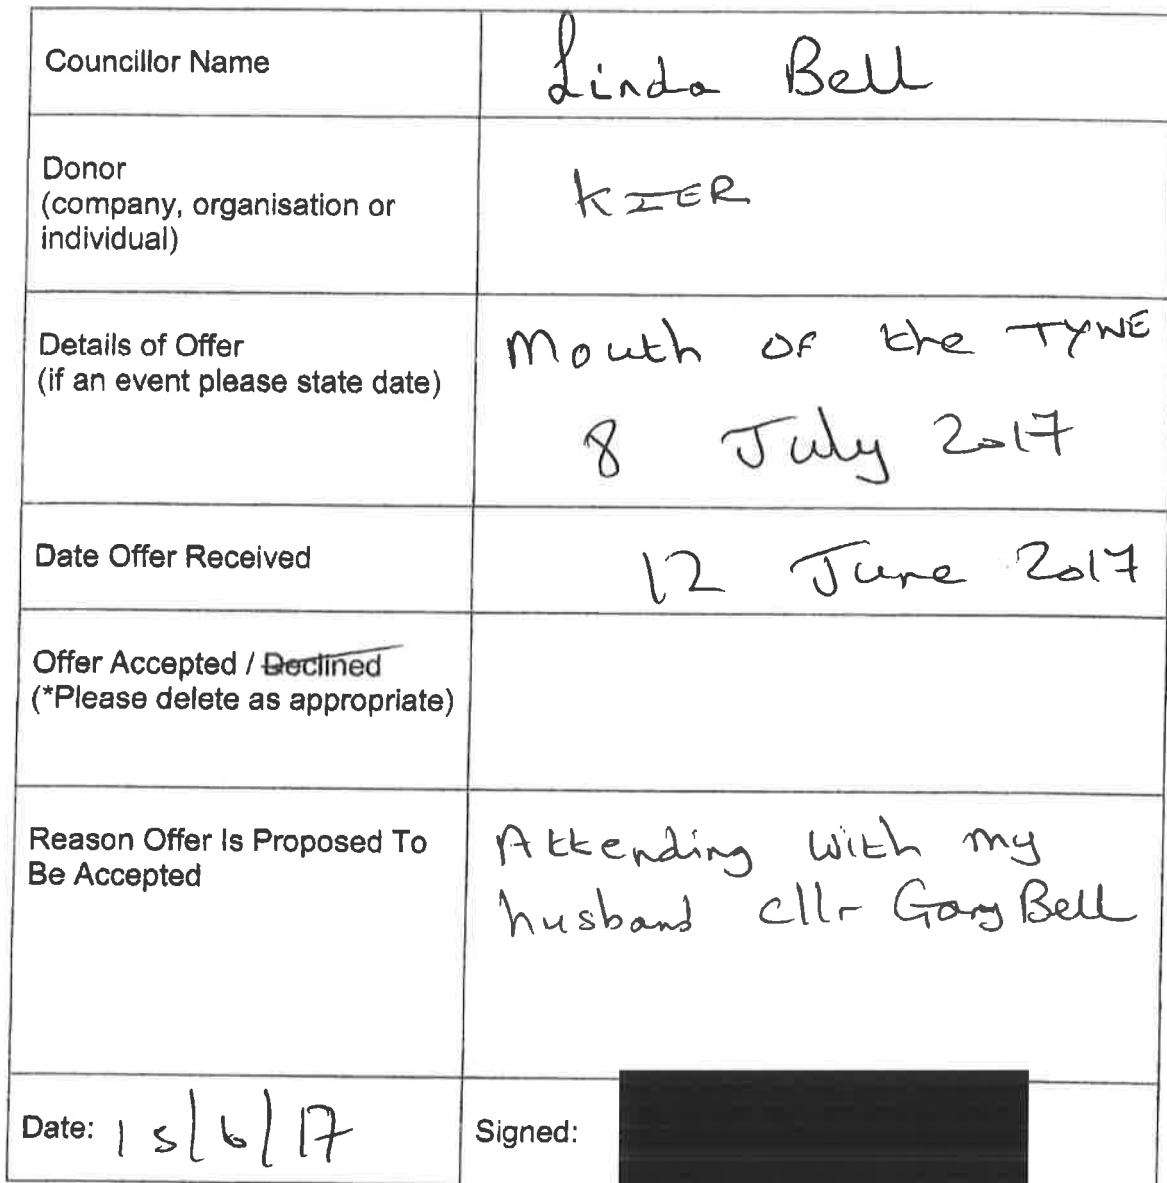 Councillor Name
Linda Bell
Donor
(company, organisation or
individual)
KIER
Details of Offer
(if an event please state date)
Mouth OF the TYNE
8 July 2017
Date Offer Received
12 June 2017
Offer Accepted / Declined
(*Please delete as appropriate)
Reason Offer Is Proposed To
Be Accepted
Attending with my
husband cllr Gary Bell
Date: 15/6/17
Signed: